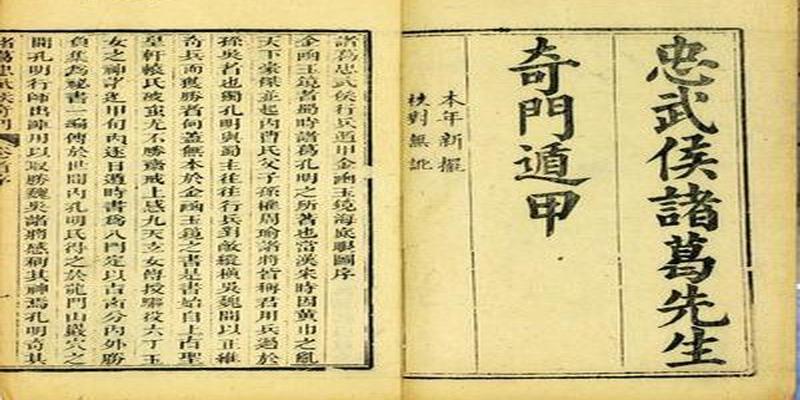 忠武侯諸葛先生
奇門遁甲
本年新擢
校對無訛
諸葛忠武侯行兵遁甲金函玉鏡海底眼圖序
金函玉鏡者蜀時諸葛孔明之所著也當漢末時因黃巾之亂
天下豪傑並起內曹氏父子孫權周瑜諸將皆稱君用兵過於
孫吳者也獨孔明與蜀主往往行兵對敵縱橫吳魏間以正維
奇兵而獲勝者何蓋無本於金函玉鏡之書是書始自上古聖
皇軒轅氏破蚩尤不勝齋戒上感九天玄女傳授驅役六丁玉
女之神書迄甲旬內逐日遁時書為八門定以吉凶分內外勝
負集為秘書一編傳於世間內孔明氏得之於龍門山巖穴之
間孔明行師出陣用以取勝魏吳諸將感稱其神焉孔明奇其
諸葛忠武侯奇門